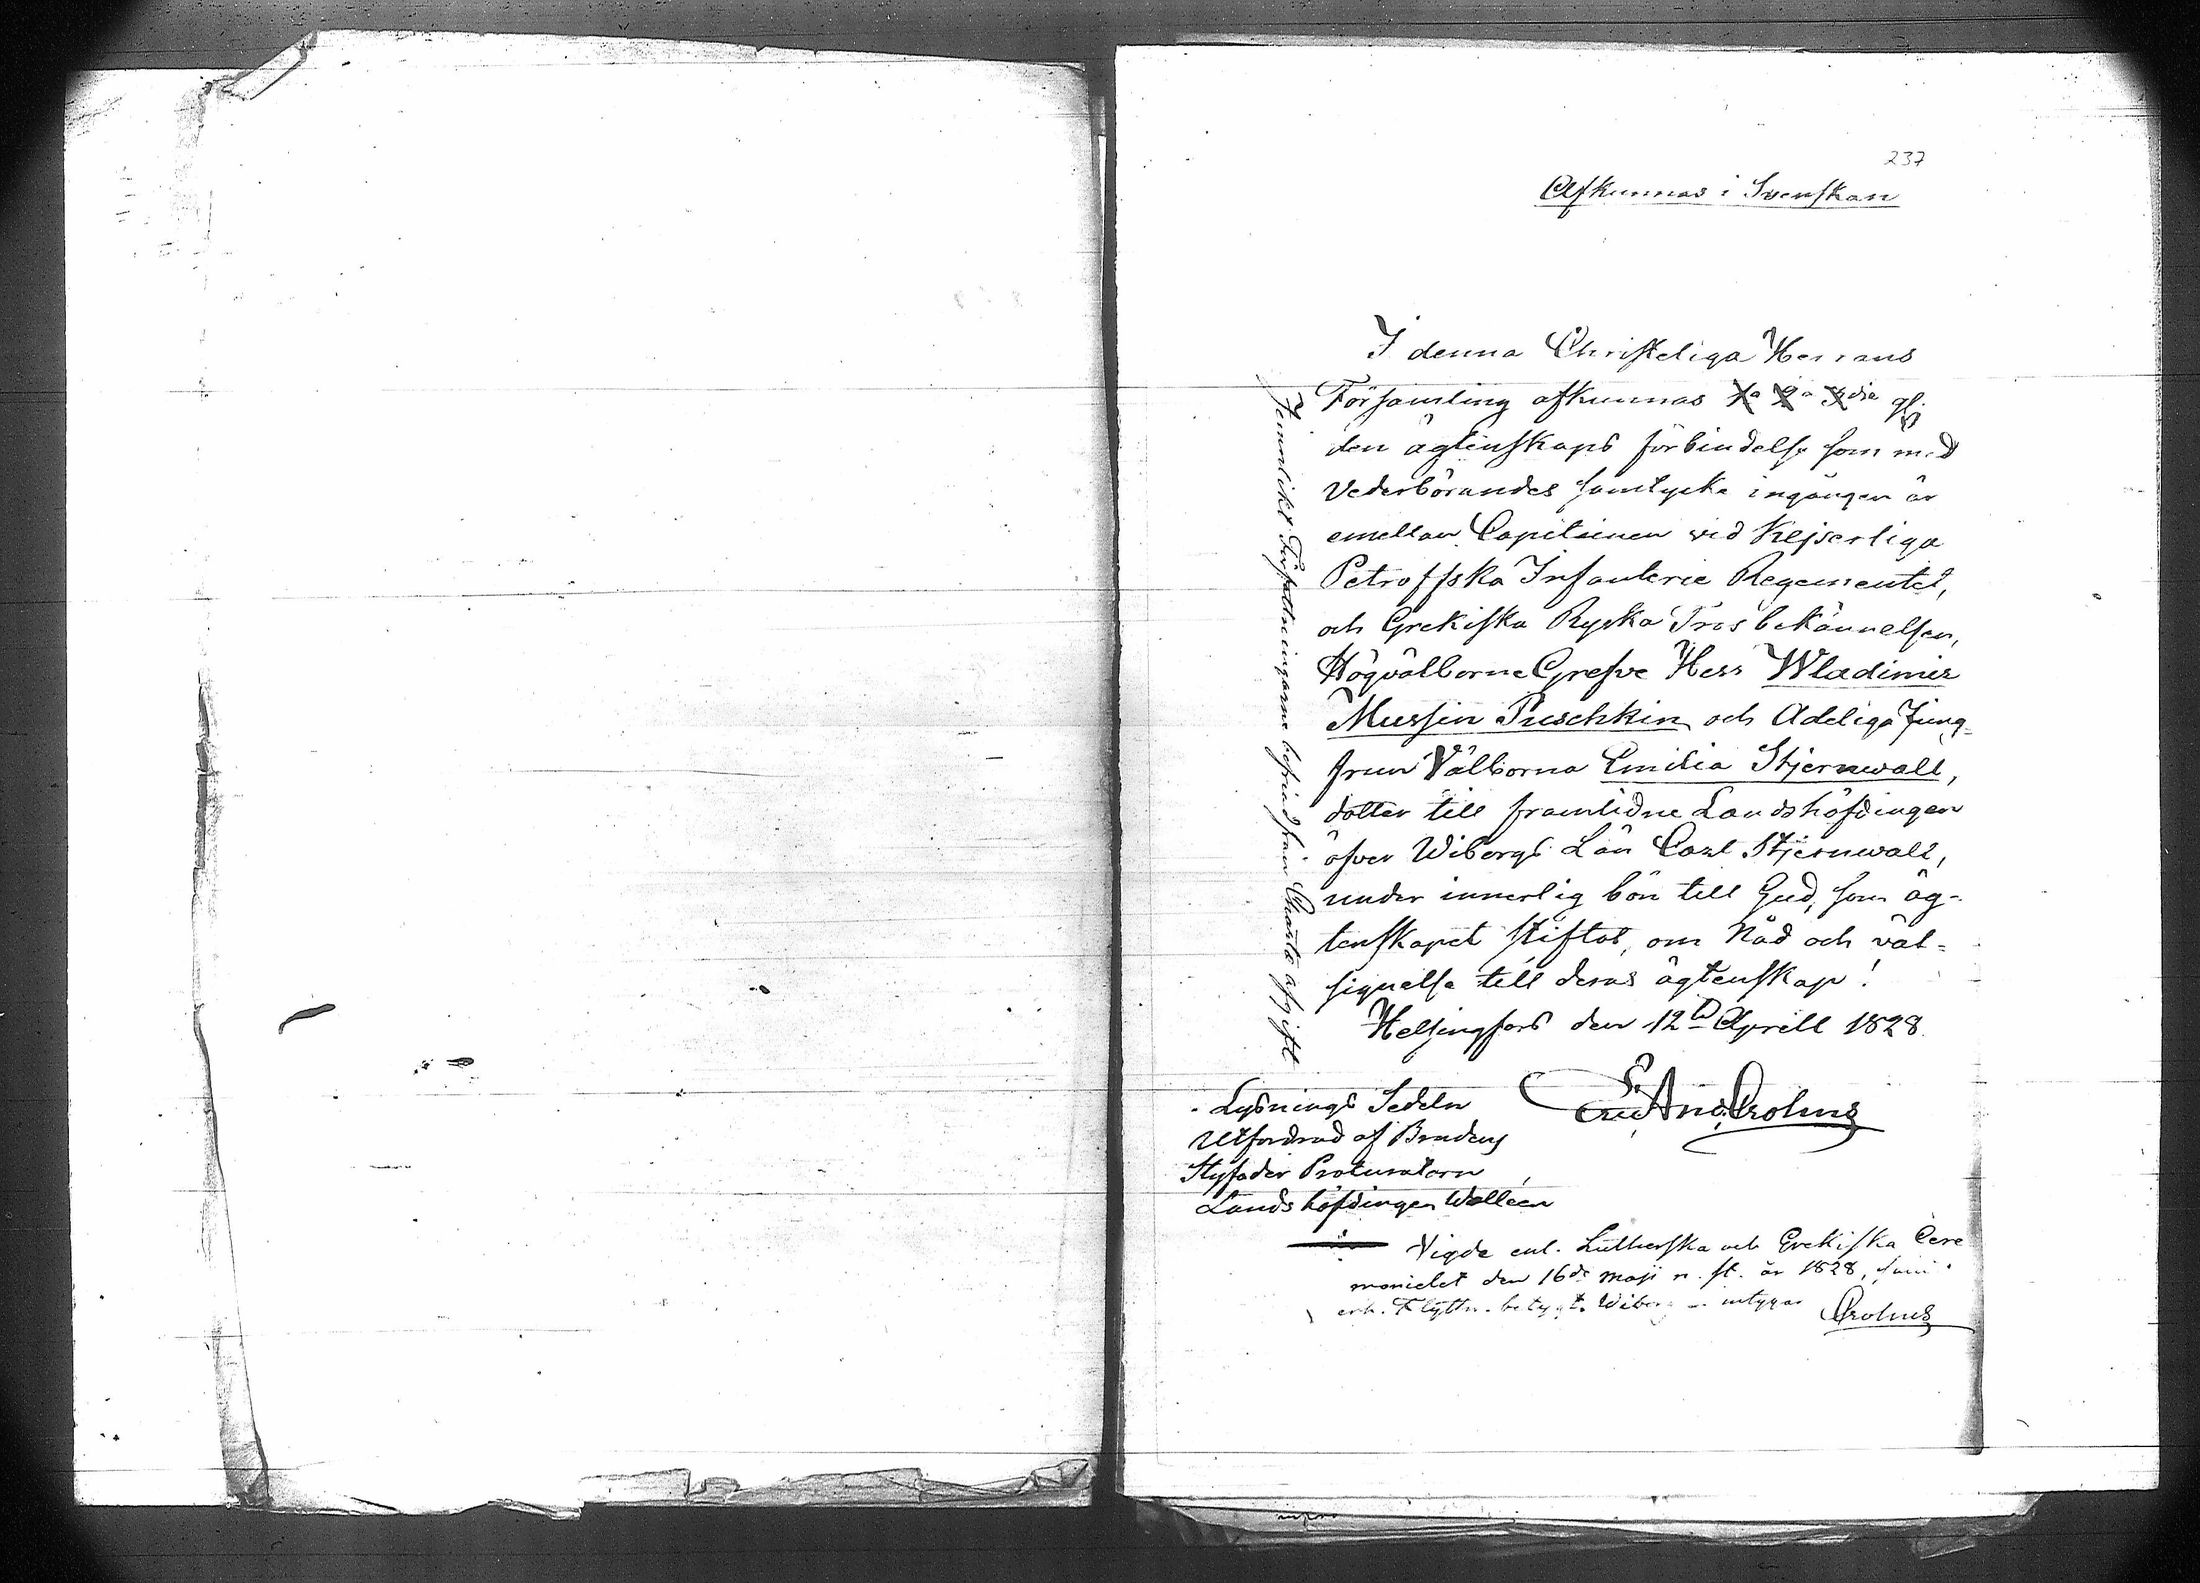 237
Afkunnas i Svenskan
I denna Christeliga Herrans
Församling afkunnas 1a 2a 3dje gg
den ägtenskaps förbindelse som med
Vederbörandes samtycke ingången är
emellan Capitainen vid Kejserliga
Petroffska Infanterie Regementet,
och Grekiska Ryska Trosbekännelsen,
Högvälborne Grefve Herr Wladimir
Mussin Puschkin och Adeliga Jung-
frun Välborna Emilia Stjernwall,
dotter till framlidne Landshöfdingen
öfver Wiborgs Län Carl Stjernwall,
under innerlig bön till Gud, som äg-
tenskapet stiftat, om Nåd och väl-
signelse till deras ägtenskap!
Helsingfors den 12te Aprill 1828.
Er. And. Crohns
Jemnlikt Författningarne befriad från Charta afgift
Lysnings Sedeln
Utfordrad af Brudens
Styfader Procuratorn
Landshöfdingen Walleen
Vigde enl. Lutherska och Grekiska Cere
monielet den 16de Maji n. st. år 1828, samt
erh. Flyttn. betyg t. Wiborg intygar
Crohns